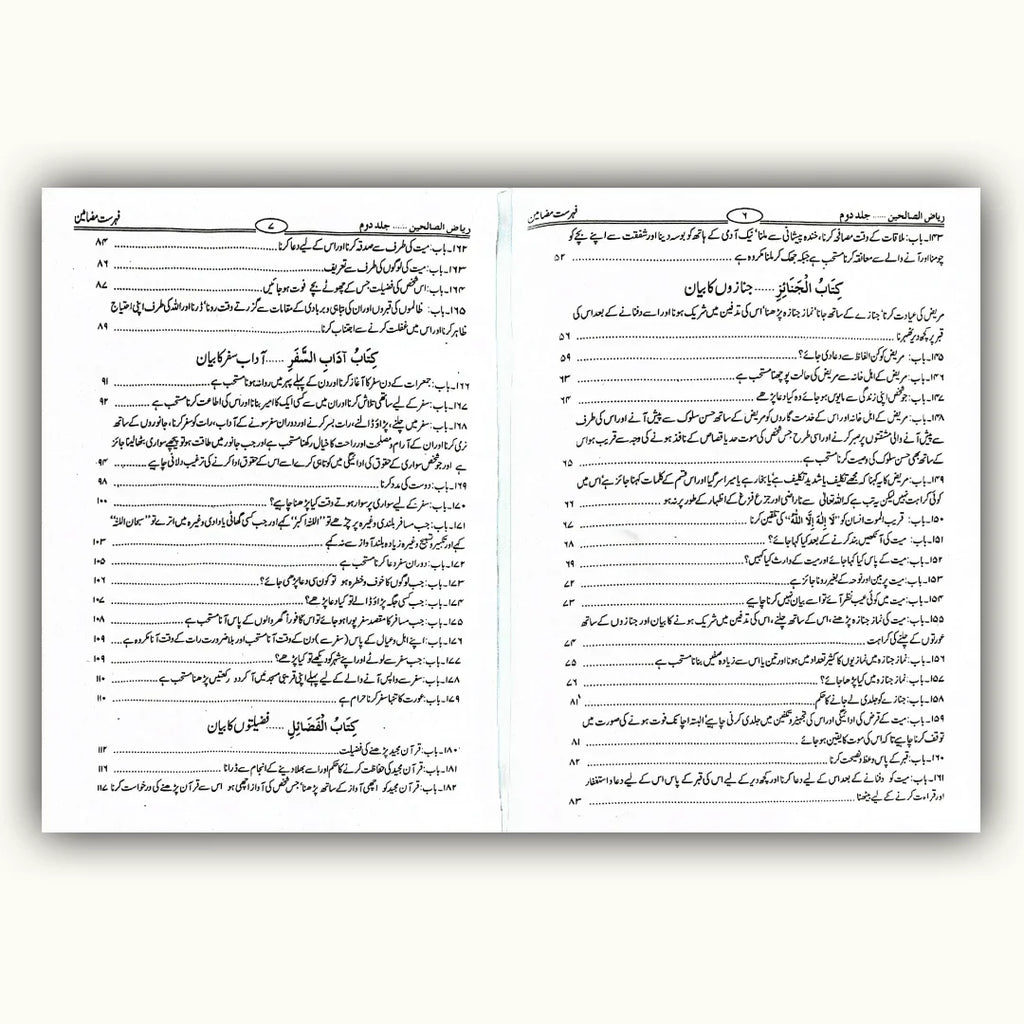 ریاض الصالحین ...... جلد دوم ۶ فہرست مضامین
۱۴۳۔باب: ملاقات کے وقت مصافحہ کرنا، خندہ پیشانی سے ملنا' نیک آدمی کے ہاتھ کو بوسہ دینا اور شفقت سے اپنے بچے کو
چومنا اور آنے والے سے معانقہ کرنا مستحب ہے جبکہ جھک کر ملنا مکروہ ہے ۵۲
کِتَابُ الْجَنَائِزِ ..... جنازوں کا بیان
مریض کی عیادت کرنا' جنازے کے ساتھ جانا' نماز جنازہ پڑھنا' اس کی تدفین میں شریک ہونا اور اسے دفنانے کے بعد اس کی
قبر پر کچھ دیر ٹھہرنا ۵۶
۱۴۵۔باب: مریض کو کن الفاظ سے دعا دی جائے؟ ۵۹
۱۴۶۔باب: مریض کے اہل خانہ سے مریض کی حالت پوچھنا مستحب ہے ۶۳
۱۴۷۔باب: جو شخص اپنی زندگی سے مایوس ہو جائے وہ کیا دعا پڑھے ۶۴
۱۴۸۔باب: مریض کے اہل خانہ اور اس کے خدمت گاروں کو مریض کے ساتھ حسن سلوک سے پیش آنے اور اس کی طرف
سے پیش آنے والی مشقتوں پر صبر کرنے اور اسی طرح جس شخص کی موت حد یا قصاص کے نافذ ہونے کی وجہ سے قریب ہو اس
کے ساتھ بھی حسن سلوک کی وصیت کرنا مستحب ہے ۶۵
۱۴۹۔باب: مریض کا یہ کہنا کہ مجھے تکلیف یا شدید تکلیف ہے' یا بخار ہے یا میرا سر گیا اور اس قسم کے کلمات کہنا جائز ہے' اس میں
کوئی کراہت نہیں لیکن یہ تب ہے کہ اللہ تعالیٰ سے ناراضی اور جزع فزع کے اظہار کے طور پر نہ ہو ۶۶
۱۵۰۔باب: قریب الموت انسان کو ''لَا اِلٰهَ اِلَّا اللّٰهُ'' کی تلقین کرنا ۶۷
۱۵۱۔باب: میت کی آنکھیں بند کرنے کے بعد کیا کہا جائے؟ ۶۸
۱۵۲۔باب: میت کے پاس کیا کہا جائے اور میت کے وارث کیا کہیں؟ ۶۹
۱۵۳۔باب: میت پر بین اور نوحہ کے بغیر رونا جائز ہے ۷۲
۱۵۴۔باب: میت میں کوئی عیب نظر آئے تو اسے بیان نہیں کرنا چاہیے ۷۳
۱۵۵۔باب: میت کی نماز جنازہ پڑھنے، اس کے ساتھ چلنے، اس کی تدفین میں شریک ہونے کا بیان اور جنازوں کے ساتھ
عورتوں کے چلنے کی کراہت ۷۴
۱۵۶۔باب: نماز جنازہ میں نمازیوں کا کثیر تعداد میں ہونا اور تین یا اس سے زیادہ صفیں بنانا مستحب ہے ۷۵
۱۵۷۔باب: نماز جنازہ میں کیا پڑھا جائے؟ ۷۶
۱۵۸۔باب: جنازے کو جلدی لے جانے کا حکم ۸۱
۱۵۹۔باب: میت کے قرض کی ادائیگی اور اس کی تجہیز و تکفین میں جلدی کرنی چاہیے' البتہ اچانک فوت ہونے کی صورت میں
توقف کرنا چاہیے تاکہ اس کی موت کا یقین ہو جائے ۸۱
۱۶۰۔باب: قبر کے پاس وعظ و نصیحت کرنا ۸۲
۱۶۱۔باب: میت کو دفنانے کے بعد اس کے لیے دعا کرنا اور کچھ دیر کے لیے اس کی قبر کے پاس اس کے لیے دعا و استغفار
اور قراءت کرنے کے لیے بیٹھنا ۸۳
ریاض الصالحین ...... جلد دوم ۷ فہرست مضامین
۱۶۲۔باب: میت کی طرف سے صدقہ کرنا اور اس کے لیے دعا کرنا ۸۴
۱۶۳۔باب: میت کی لوگوں کی طرف سے تعریف ۸۶
۱۶۴۔باب: اس شخص کی فضیلت جس کے چھوٹے بچے فوت ہو جائیں ۸۷
۱۶۵۔باب: ظالموں کی قبروں اور ان کی تباہی و بربادی کے مقامات سے گزرتے وقت رونا' ڈرنا اور اللہ کی طرف اپنی احتیاج
ظاہر کرنا اور اس میں غفلت کرنے سے اجتناب کرنا ۸۹
کِتَابُ آدَابِ السَّفَرِ ..... آداب سفر کا بیان
۱۶۶۔باب: جمعرات کے دن سفر کا آغاز کرنا اور دن کے پہلے پہر میں روانہ ہونا مستحب ہے ۹۱
۱۶۷۔باب: سفر کے لیے ساتھی تلاش کرنا اور ان میں سے کسی ایک کا امیر بنانا اور اس کی اطاعت کرنا مستحب ہے ۹۲
۱۶۸۔باب: سفر میں چلنے، پڑاؤ ڈالنے، رات بسر کرنے اور دوران سفر سونے کے آداب، رات کو سفر کرنا، جانوروں کے ساتھ
نرمی کرنا اور ان کے آرام و مصلحت اور راحت کا خیال رکھنا مستحب ہے اور جب جانور میں طاقت ہو تو پیچھے سواری بٹھا لینا جائز
ہے اور جو شخص سواری کے حقوق کی ادائیگی میں کوتاہی کرے اسے اس کے حقوق ادا کرنے کی ترغیب دلانی چاہیے ۹۴
۱۶۹۔باب: دوست کی مدد کرنا ۹۸
۱۷۰۔باب: سفر کے لیے سواری پر سوار ہوتے وقت کیا پڑھنا چاہیے؟ ۱۰۰
۱۷۱۔باب: جب مسافر بلندی وغیرہ پر چڑھے تو ''اللہ اکبر'' کہے اور جب کسی گھاٹی یا وادی وغیرہ میں اترے تو ''سبحان اللہ''
کہے اور تکبیر و تسبیح وغیرہ زیادہ بلند آواز سے نہ کہے ۱۰۳
۱۷۲۔باب: دوران سفر دعا کرنا مستحب ہے ۱۰۵
۱۷۳۔باب: جب لوگوں کا خوف و خطرہ ہو تو کون سی دعا پڑھی جائے؟ ۱۰۶
۱۷۴۔باب: جب کسی جگہ پڑاؤ ڈالے تو کیا دعا پڑھے؟ ۱۰۷
۱۷۵۔باب: جب مسافر کا مقصد سفر پورا ہو جائے تو اس کا فوراً گھر والوں کے پاس آنا مستحب ہے ۱۰۸
۱۷۶۔باب: اپنے اہل و عیال کے پاس (سفر سے) دن کے وقت آنا مستحب اور بلا ضرورت رات کے وقت آنا مکروہ ہے ۱۰۹
۱۷۷۔باب: جب سفر سے لوٹے اور اپنے شہر کو دیکھے تو کیا پڑھے؟ ۱۰۹
۱۷۸۔باب: سفر سے واپس آنے والے کے لیے پہلے اپنی قریبی مسجد میں آ کر دو رکعتیں پڑھنا مستحب ہے ۱۱۰
۱۷۹۔باب: عورت کا تنہا سفر کرنا حرام ہے ۱۱۰
کِتَابُ الْفَضَائِلِ ..... فضیلتوں کا بیان
۱۸۰۔باب: قرآن مجید پڑھنے کی فضیلت ۱۱۲
۱۸۱۔باب: قرآن مجید کی حفاظت کرنے کا حکم اور اسے بھلا دینے کے انجام سے ڈرانا ۱۱۶
۱۸۲۔باب: قرآن مجید کو اچھی آواز کے ساتھ پڑھنا' جس شخص کی آواز اچھی ہو اس سے قرآن پڑھنے کی درخواست کرنا ۱۱۷